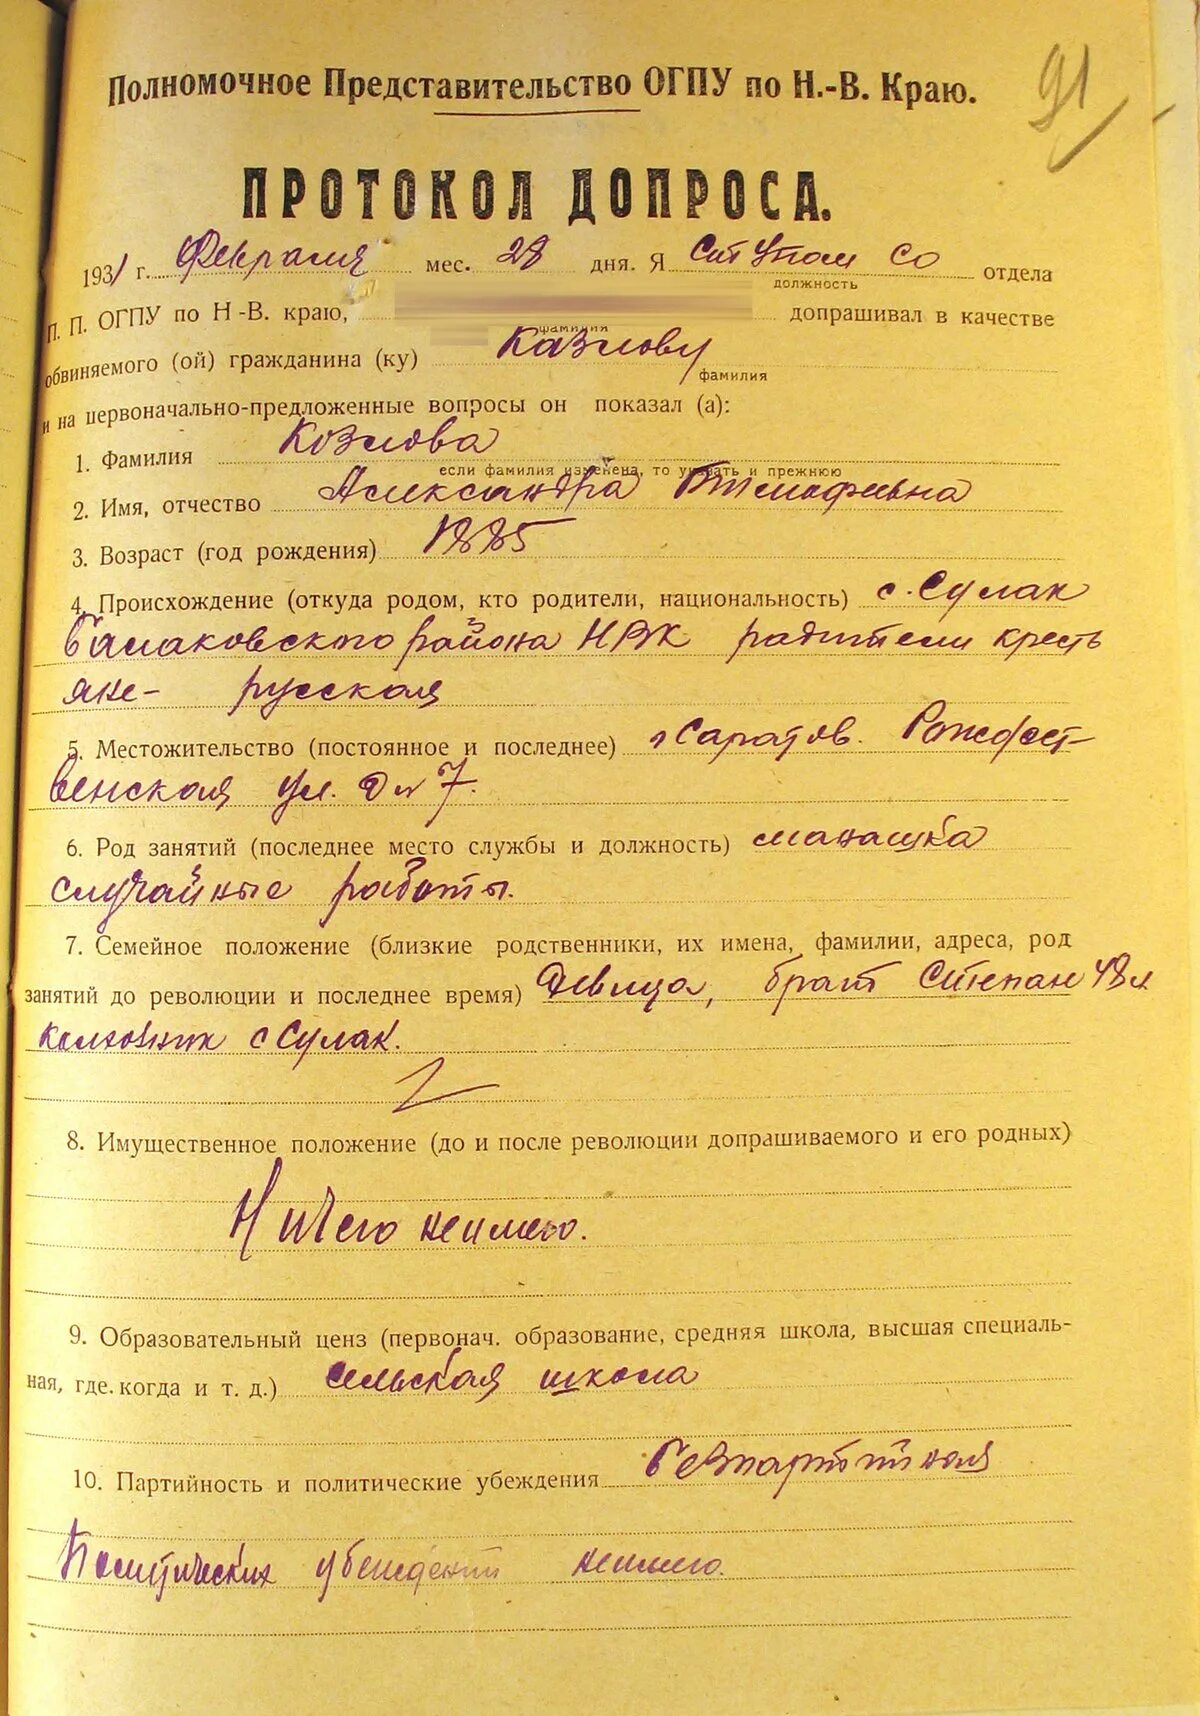 91
Полномочное Представительство ОГПУ по Н.-В. Краю.
ПРОТОКОЛ ДОПРОСА.
1931 г. Февраля мес. 28 дня. Я СтУпом СО отдела
должность
П. П. ОГПУ по Н-В. краю, допрашивал в качестве
фамилия
обвиняемого (ой) гражданина (ку) Казлову
фамилия
и на первоначально-предложенные вопросы он показал (а):
1. Фамилия Козлова
если фамилия изменена, то указать и прежнюю
2. Имя, отчество Александра Тимофеевна
3. Возраст (год рождения) 1885
4. Происхождение (откуда родом, кто родители, национальность) с. Сулак
Балаковского района НВК радители кресть
яне- русская
5. Местожительство (постоянное и последнее) г Саратов. Рождест-
венская ул. д № 7.
6. Род занятий (последнее место службы и должность) манашка
случайные работы.
7. Семейное положение (близкие родственники, их имена, фамилии, адреса, род
занятий до революции и последнее время) Девица, брат Степан 48 л
колхозник с Сулак.
8. Имущественное положение (до и после революции допрашиваемого и его родных)
Ничего неимею.
9. Образовательный ценз (первонач. образование, средняя школа, высшая специаль-
ная, где. когда и т. д.) сельская школа
10. Партийность и политические убеждения безпартийная
Политических убеждений неимею.